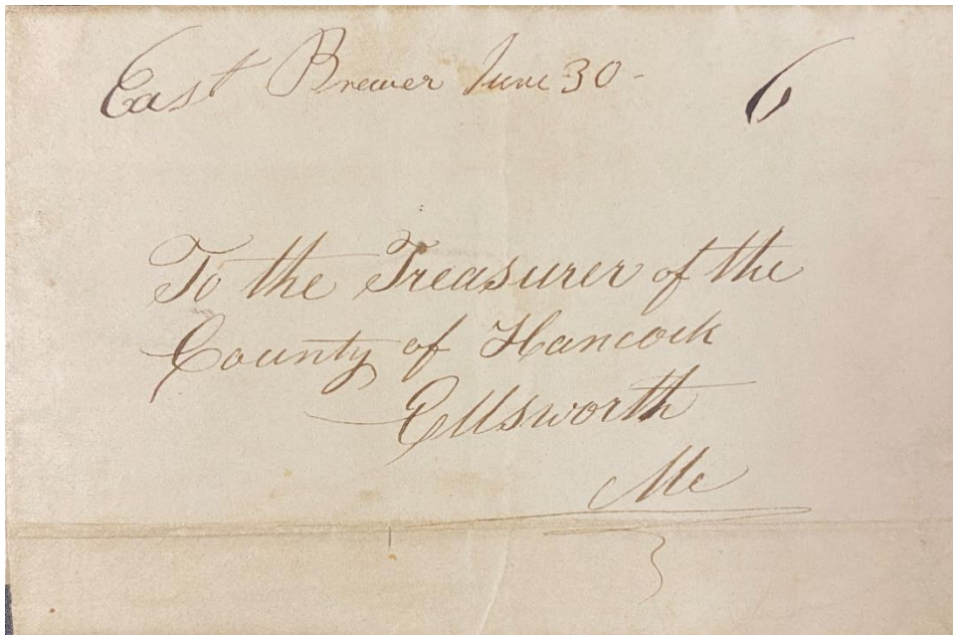 East Brewer June 30 - 6
To the Treasurer of the
County of Hancock
Ellsworth
Me